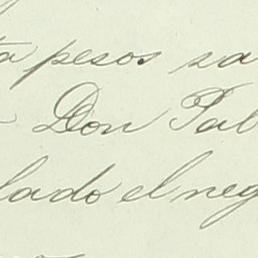 ta pesos sa
Don Pab
lado el neg